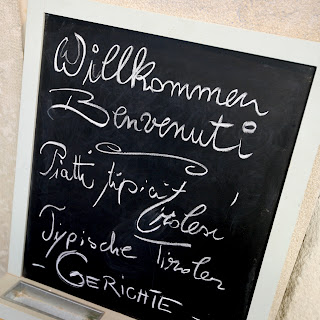 Willkommen
Benvenuti
Piatti tipici
Tirolesi
Typische Tiroler
- GERICHTE -